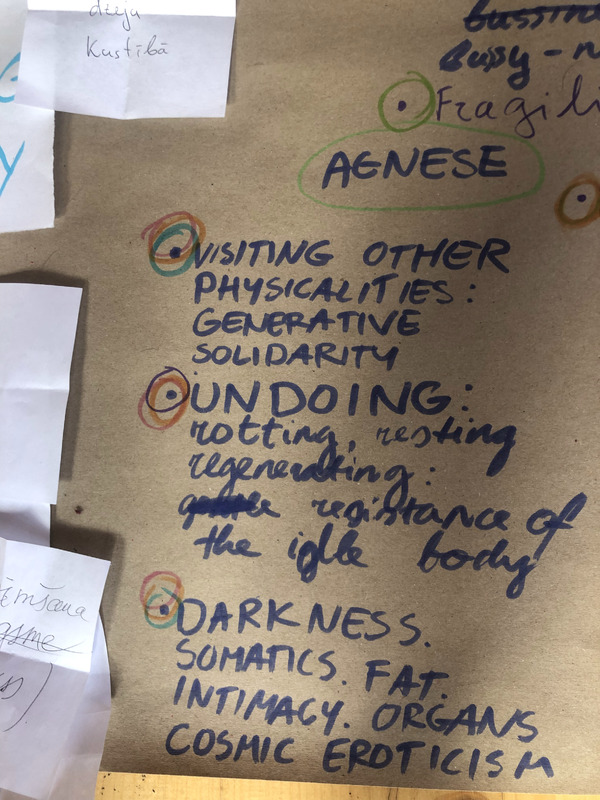 dieju
Kustībā
Bussy - n
Fragili
AGNESE
VISITING OTHER
PHYSICALITIES:
GENERATIVE
SOLIDARITY
UNDOING:
rotting, resting
regenerating:
resistance of
the idle body
DARKNESS.
SOMATICS. FAT.
INTIMACY. ORGANS
COSMIC EROTICISM